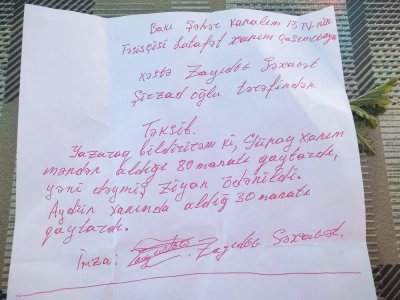 Bakı Şəhər Kanalım 13 TV-nin
Təsisçisi Lətafət xanım Qasımovaya
xəstə Zayıdov Səxavət
Şirzad oğlu tərəfindən
Təkzib.
Yazaraq bildirirəm ki, Günay xanım
məndən aldığı 80 manatı qaytardı,
yəni dəymiş ziyan ödənildi.
Aydın yanında aldığı 30 manatı
qaytardı.
İmza: Zayıdov Səxavət.